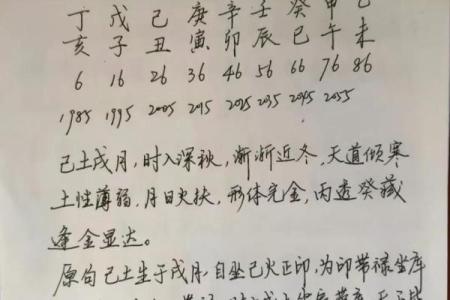 丁 戊 己 庚 辛 壬 癸 甲
亥 子 丑 寅 卯 辰 巳 午 未
6 16 26 36 46 56 66 76 86
1985 1995 2005 2015 2025 2035 2045 2055
己土戌月，时入深秋，渐渐近冬，天道倾寒
土性薄弱，月日火扶，形体完金，丙透癸藏
逢金显达。
原句己土生于戌月，自坐巳火正印，为印带禄坐库